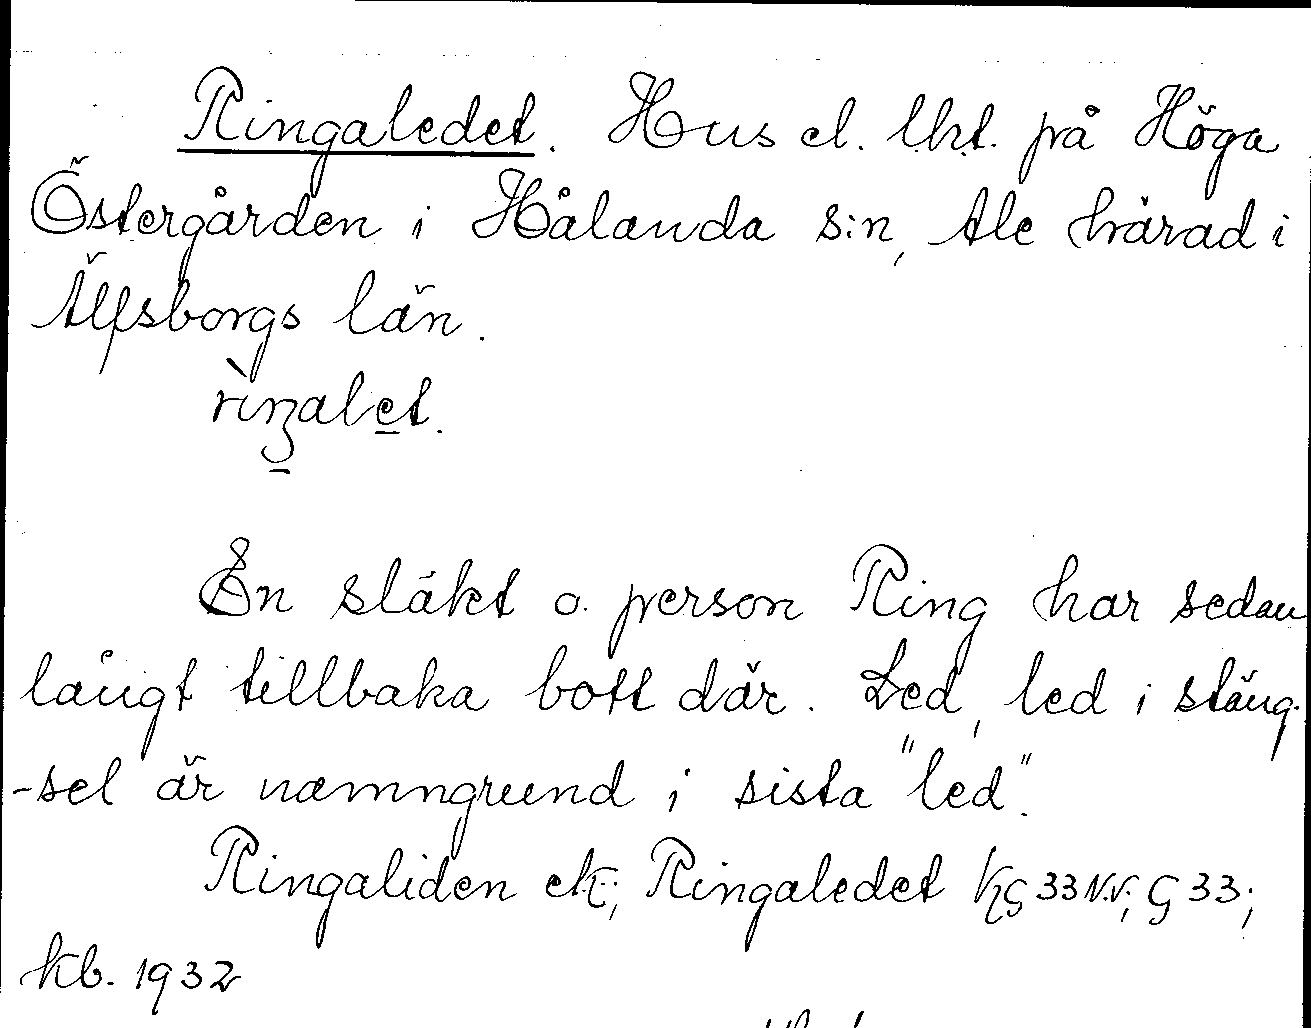 Ringaledet. Hus el. lht. på Höga
Östergården i Hålanda s:n, Ale härad i
Älfsborgs län.
rìŋalet.
En släkt o. person Ring har sedan
långt tillbaka bott där. Led, led i stäng-
-sel är namngrund i sista "led".
Ringaliden ek; Ringaledet KG 33 N.V; G 33;
kb. 1932